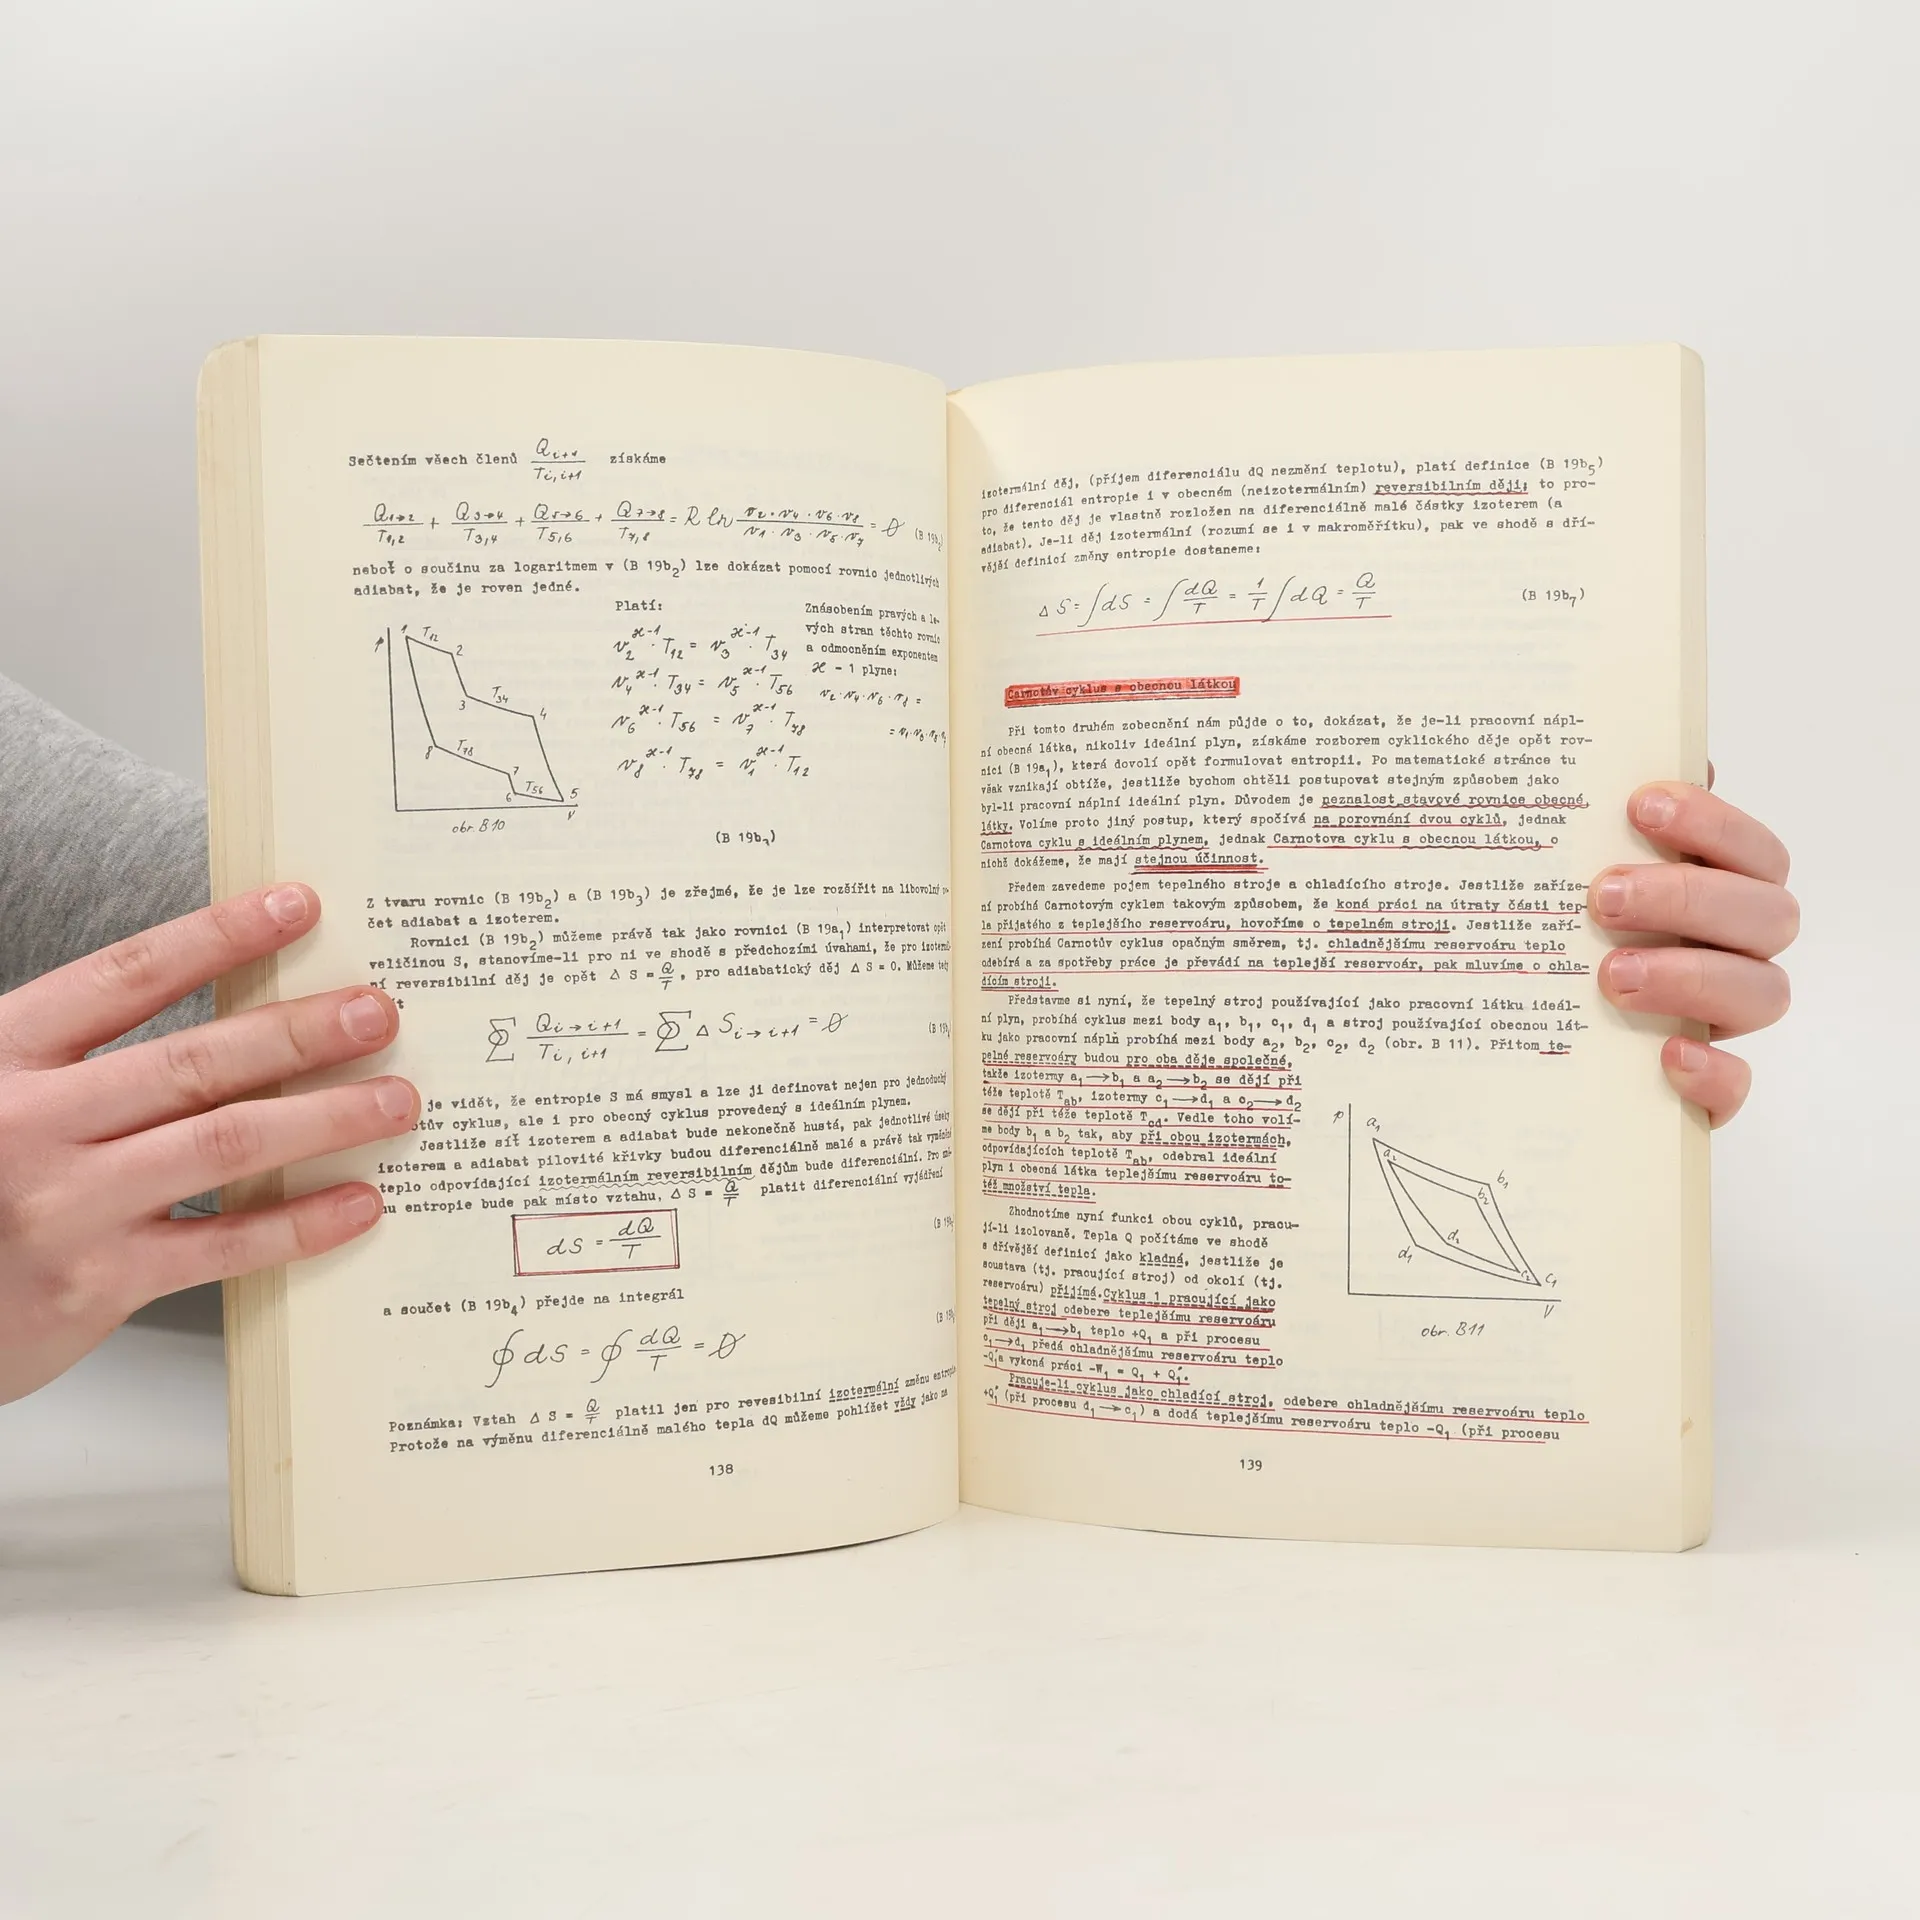 Sečtením všech členů Qi→i+1 / Ti,i+1 získáme
Q1→2 / T1,2 + Q3→4 / T3,4 + Q5→6 / T5,6 + Q7→8 / T7,8 = R ln v2·v4·v6·v8 / v1·v3·v5·v7 = 0 (B 19b2)
neboť o součinu za logaritmem v (B 19b2) lze dokázat pomocí rovnic jednotlivých
adiabat, že je roven jedné.
p 1 T12 2 3 T34 4 8 T78 7 6 T56 5 V
obr. B10
Platí:
v2^ϰ-1 · T12 = v3^ϰ-1 · T34
v4^ϰ-1 · T34 = v5^ϰ-1 · T56
v6^ϰ-1 · T56 = v7^ϰ-1 · T78
v8^ϰ-1 · T78 = v1^ϰ-1 · T12
(B 19b3)
Znásobením pravých a le-
vých stran těchto rovnic
a odmocněním exponentem
ϰ - 1 plyne:
v2·v4·v6·v8 =
= v1·v3·v5·v7
Z tvaru rovnic (B 19b2) a (B 19b3) je zřejmé, že je lze rozšířit na libovolný po-
čet adiabat a izoterem.
Rovnici (B 19b2) můžeme právě tak jako rovnici (B 19a1) interpretovat opět
veličinou S, stanovíme-li pro ni ve shodě s předchozími úvahami, že pro izotermál-
ní reversibilní děj je opět Δ S = Q/T, pro adiabatický děj Δ S = 0. Můžeme tedy
∑ Qi→i+1 / Ti,i+1 = ∑ Δ Si→i+1 = 0
je vidět, že entropie S má smysl a lze ji definovat nejen pro jednoduchý
cyklus, ale i pro obecný cyklus provedený s ideálním plynem.
Jestliže síť izoterem a adiabat bude nekonečně hustá, pak jednotlivé úseky
izoterem a adiabat pilovité křivky budou diferenciálně malé a právě tak vyměněné
teplo odpovídající izotermálním reversibilním dějům bude diferenciální. Pro změ-
nu entropie bude pak místo vztahu, Δ S = Q/T platit diferenciální vyjádření
dS = dQ/T
a součet (B 19b4) přejde na integrál
∮ dS = ∮ dQ/T = 0
Poznámka: Vztah Δ S = Q/T platil jen pro revesibilní izotermální změnu entropie
Protože na výměnu diferenciálně malého tepla dQ můžeme pohlížet vždy jako na
138
izotermální děj, (příjem diferenciálu dQ nezmění teplotu), platí definice (B 19b5)
pro diferenciál entropie i v obecném (neizotermálním) reversibilním ději; to pro-
to, že tento děj je vlastně rozložen na diferenciálně malé částky izoterem (a
adiabat). Je-li děj izotermální (rozumí se i v makroměřítku), pak ve shodě s dří-
vější definicí změny entropie dostaneme:
Δ S = ∫dS = ∫dQ/T = 1/T ∫dQ = Q/T (B 19b7)
Carnotův cyklus s obecnou látkou
Při tomto druhém zobecnění nám půjde o to, dokázat, že je-li pracovní nápl-
ní obecná látka, nikoliv ideální plyn, získáme rozborem cyklického děje opět rov-
nici (B 19a1), která dovolí opět formulovat entropii. Po matematické stránce tu
však vznikají obtíže, jestliže bychom chtěli postupovat stejným způsobem jako
byl-li pracovní náplní ideální plyn. Důvodem je neznalost stavové rovnice obecné
látky. Volíme proto jiný postup, který spočívá na porovnání dvou cyklů, jednak
Carnotova cyklu s ideálním plynem, jednak Carnotova cyklu s obecnou látkou, o
nichž dokážeme, že mají stejnou účinnost.
Předem zavedeme pojem tepelného stroje a chladícího stroje. Jestliže zaříze-
ní probíhá Carnotovým cyklem takovým způsobem, že koná práci na útraty části tep-
la přijatého z teplejšího reservoáru, hovoříme o tepelném stroji. Jestliže zaří-
zení probíhá Carnotův cyklus opačným směrem, tj. chladnějšímu reservoáru teplo
odebírá a za spotřeby práce je převádí na teplejší reservoár, pak mluvíme o chla-
dícím stroji.
Představme si nyní, že tepelný stroj používající jako pracovní látku ideál-
ní plyn, probíhá cyklus mezi body a1, b1, c1, d1 a stroj používající obecnou lát-
ku jako pracovní náplň probíhá mezi body a2, b2, c2, d2 (obr. B 11). Přitom te-
pelné reservoáry budou pro oba děje společné,
takže izotermy a1→b1 a a2→b2 se dějí při
téže teplotě Tab, izotermy c1→d1 a c2→d2
se dějí při téže teplotě Tcd. Vedle toho volí-
me body b1 a b2 tak, aby při obou izotermách,
odpovídajících teplotě Tab, odebral ideální
plyn i obecná látka teplejšímu reservoáru to-
též množství tepla.
Zhodnotíme nyní funkci obou cyklů, pracu-
jí-li izolovaně. Tepla Q počítáme ve shodě
s dřívější definicí jako kladná, jestliže je
soustava (tj. pracující stroj) od okolí (tj.
reservoáru) přijímá. Cyklus 1 pracující jako
tepelný stroj odebere teplejšímu reservoáru
při ději a1→b1 teplo +Q1 a při procesu
c1→d1 předá chladnějšímu reservoáru teplo
-Q1' a vykoná práci -W1 = Q1 + Q1'.
p a1 a2 b1 b2 d2 d1 c2 c1 V
obr. B11
Pracuje-li cyklus jako chladící stroj, odebere chladnějšímu reservoáru teplo
+Q1' (při procesu d1→c1) a dodá teplejšímu reservoáru teplo -Q1 (při procesu
139